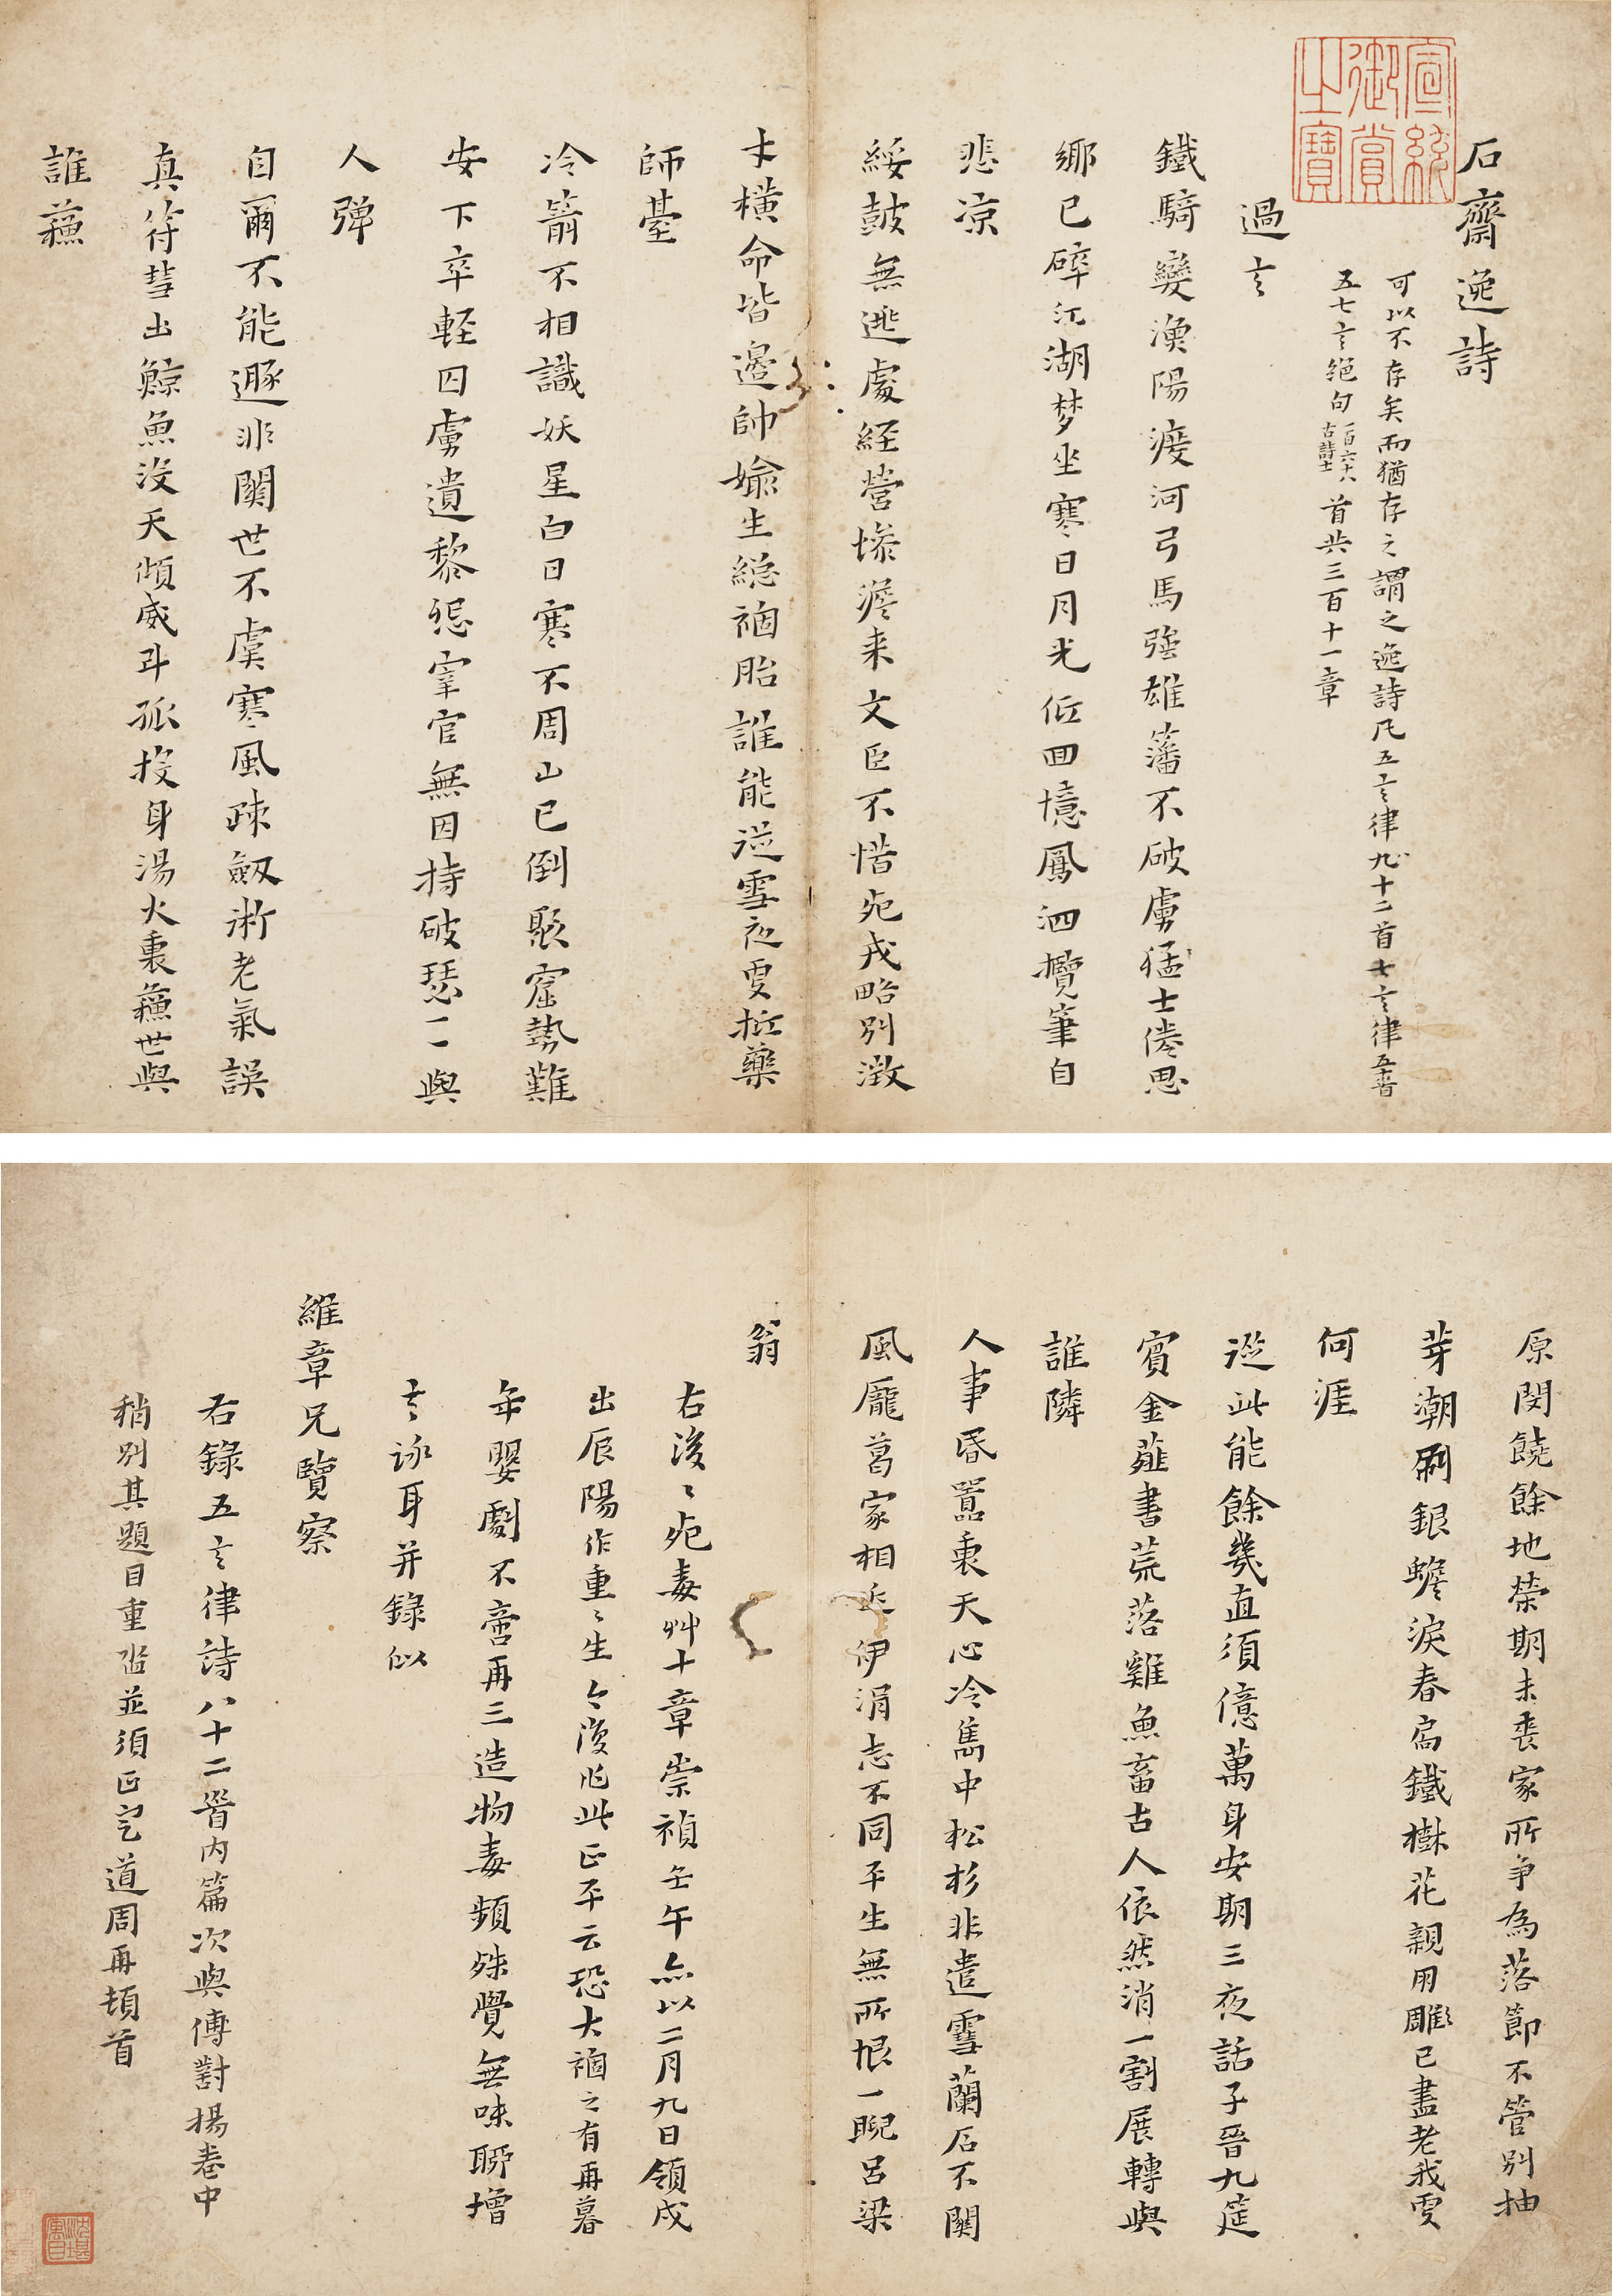 石齋逸詩
可以不存矣而猶存之謂之逸詩凡五言律九十二首七言律五十首
五七言絕句一百六十八古詩十一首共三百十一章
過言
鐵騎變漁陽渡河弓馬強雄藩不破虜猛士倦思
鄉已碎江湖梦坐寒日月光低回憶鳳泗攬筆自
悲凉
綏鼓無逃處經營慘澹来文臣不惜死戎略別澂
才橫命皆邊帥婾生總禍胎誰能從雪夜更抵藥
師臺
冷箭不相識妖星白日寒不周山已倒懸窟勢難
安下卒輕囚虜遺黎怨宰官無因持破瑟一與
人彈
自爾不能遯非關世不虞寒風疎劔術老氣誤
真符彗出鯨魚沒天傾威斗孤投身湯火裏蘓世與
誰蘓
原閔饒餘地榮期未喪家所争為落節不管別抽
芽潮刷銀蟾淚春啟鐵樹花親朋雕已盡老我更
何涯
從此能餘幾直須億萬身安期三夜話子晉九筵
賓金薤書荒落雞魚畜古人依然消一割展轉與
誰隣
人事昏囂裏天心冷雋中松杉非遣雪蘭石不關
風龐葛家相近伊涓志不同平生無所恨一睨呂梁
翁
右後後死毒艸十章崇禎壬午亦以二月九日領戍
出辰陽作重重生今復此正平云恐大禍之有再暮
年嬰劇不啻再三造物毒頻殊覺無味聊增
言詠耳并錄似
維章兄覽察
右錄五言律詩八十二首內篇次與傅對揚卷中
稍別其題目重沓並須正定道周再頓首